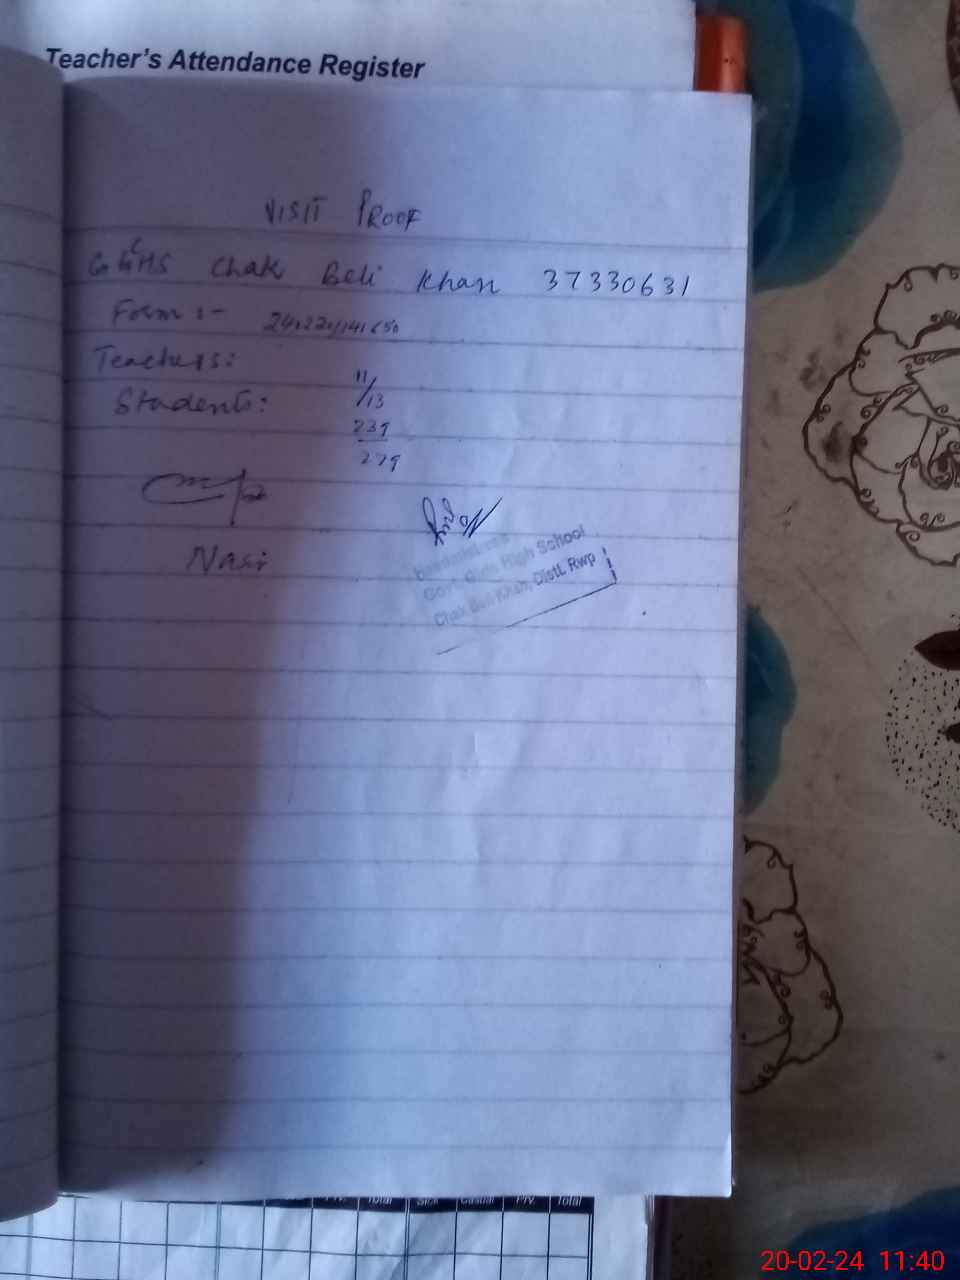 Teacher's Attendance Register
VISIT PROOF
GGHS Chak Beli Khan 37330631
Form :-
Teachers: 11/13
Students: 239
279
Nasi
Govt. Girls High School
Chak Beli Khan, Distt. Rwp
Prv. Total Sick Casual Prv. Total
20-02-24 11:40